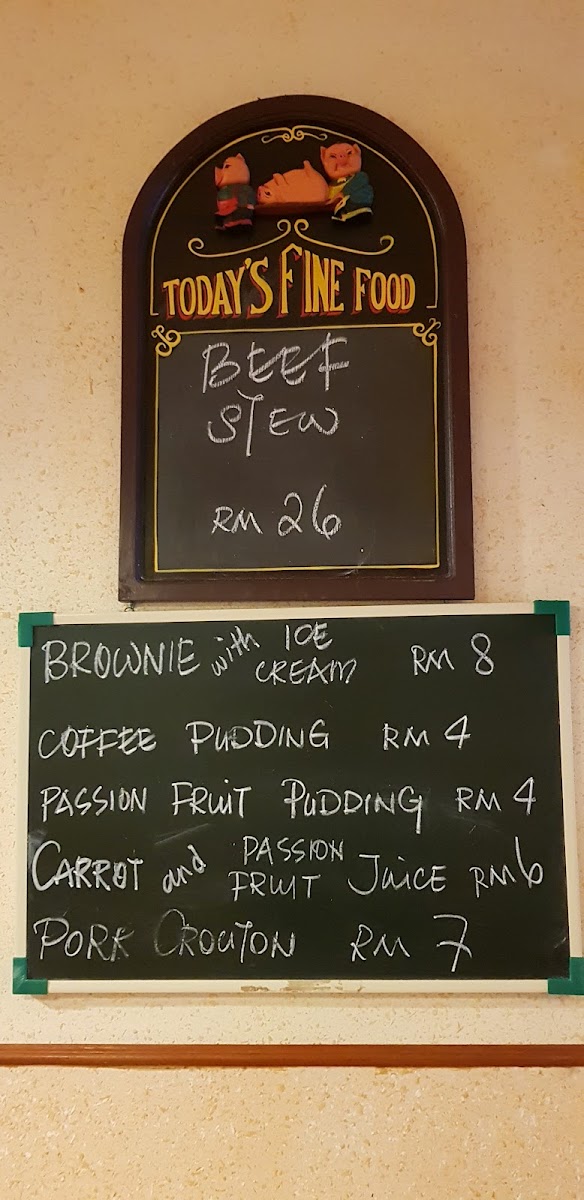 TODAY'S FINE FOOD
BEEF
STEW
RM 26
BROWNIE with ICE CREAM RM 8
COFFEE PUDDING RM 4
PASSION FRUIT PUDDING RM 4
CARROT and PASSION FRUIT JUICE RM 6
PORK CROUTON RM 7